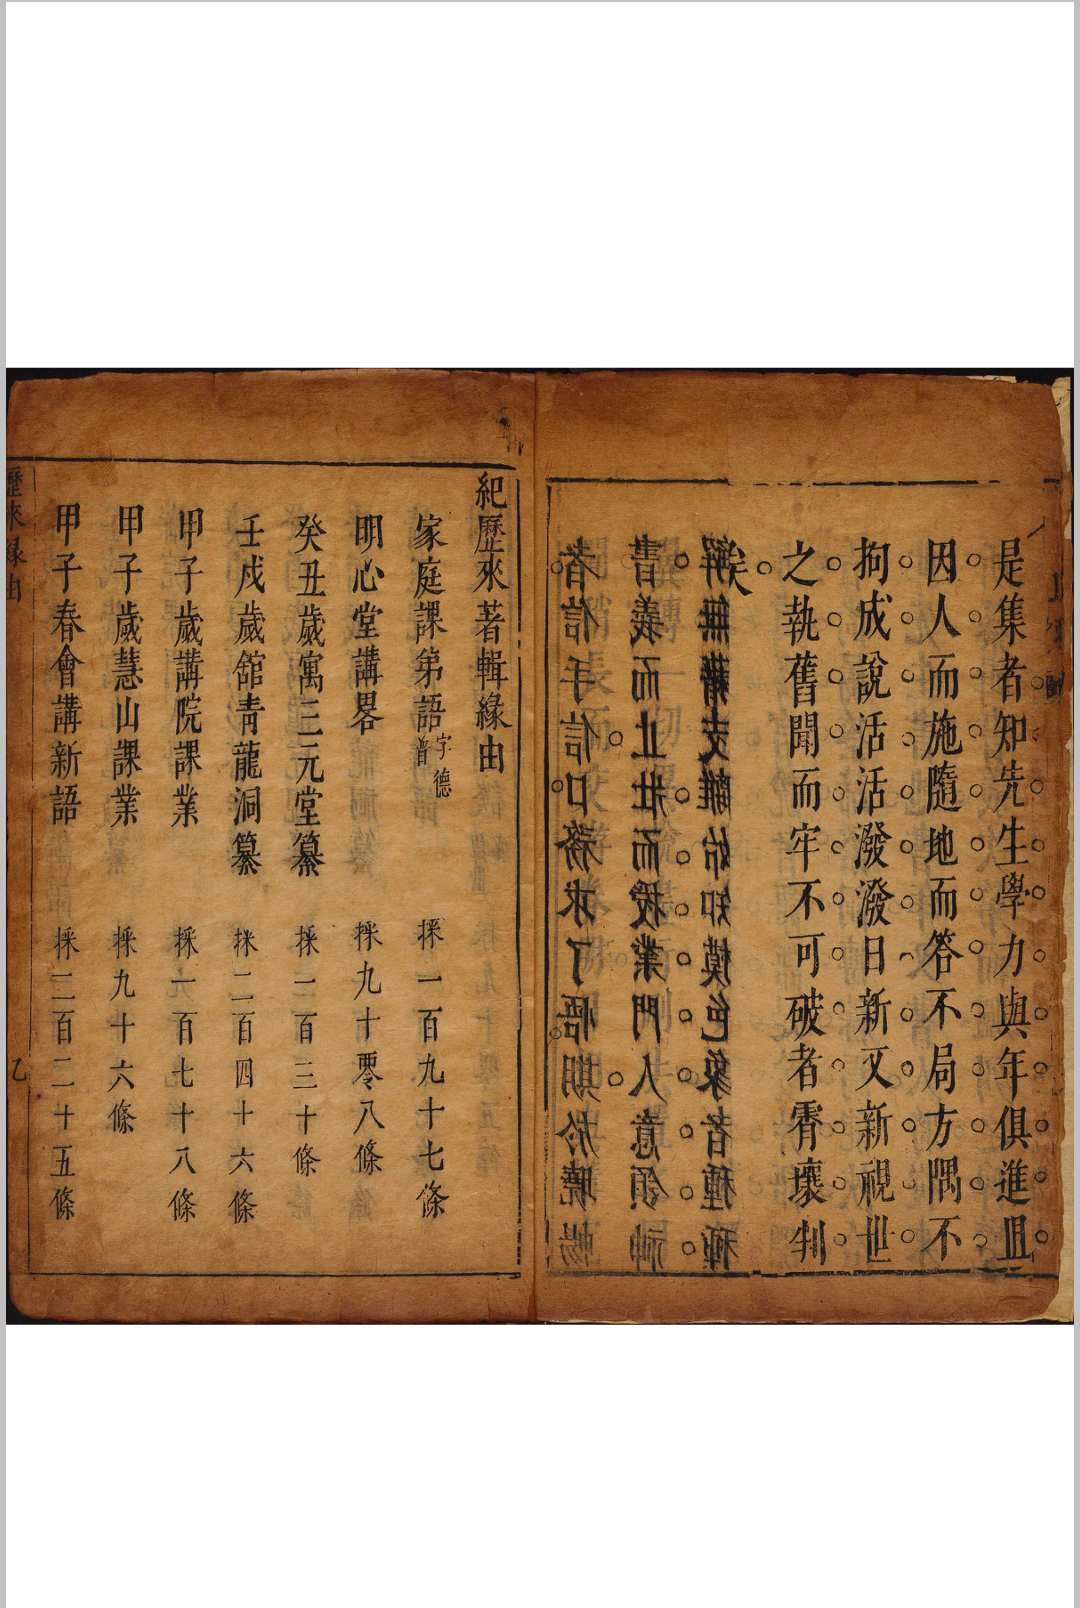 是集者知先生學力與年俱進且
因人而施隨地而答不局方隅不
拘成說活活潑潑日新又新視世
之執舊聞而牢不可破者霄壤判
矣
解無藉支離始知摸色象者種種
書義而止壯而授業門人意領神
者信手信口務求了悟期於曉暢
紀歷來著輯緣由
家庭課第語字德普 採一百九十七條
明心堂講畧 採九十零八條
癸丑歲寓三元堂纂 採一百三十條
壬戍歲舘青龍洞纂 採二百四十六條
甲子歲講院課業 採一百七十八條
甲子歲慧山課業 採九十六條
甲子春會講新語 採二百二十五條
歷來緣由